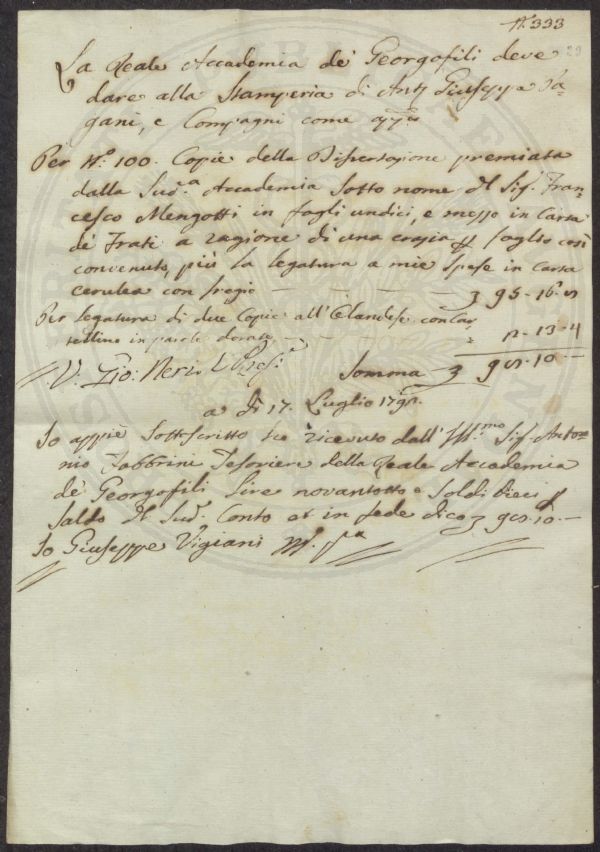 N. 333
23
La Reale Accademia de' Georgofili deve
dare alla Stamperia di Anty Giuseppe Pa-
gani, e Compagni come app.º
Per N.º 100. Copie della Dissertazione premiata
dalla Sud.ª Accademia Sotto nome del Sig. Fran-
cesco Mengotti in fogli undici, e mezzo in Carta
de' Frati a ragione di una crazia p foglio così
convenuto, più la legatura a mie Spese in Carta
cerulea con fregio — 95.16.8
Per legatura di due Copie all'Olandese con Car-
tellino in parole dorate — 2.13.4
V. Gio: Neri
Somma 98.10 —
a dì 17. Luglio 179
Io appiè Sottoscritto ho ricevuto dall' Ill.mo Sig. Anto-
nio Fabbrini Tesoriere della Reale Accademia
de' Georgofili Lire novantotto e Soldi Dieci p
Saldo del Sud.º Conto et in fede dico 98.10 —
Io Giuseppe Vigiani M. P.a